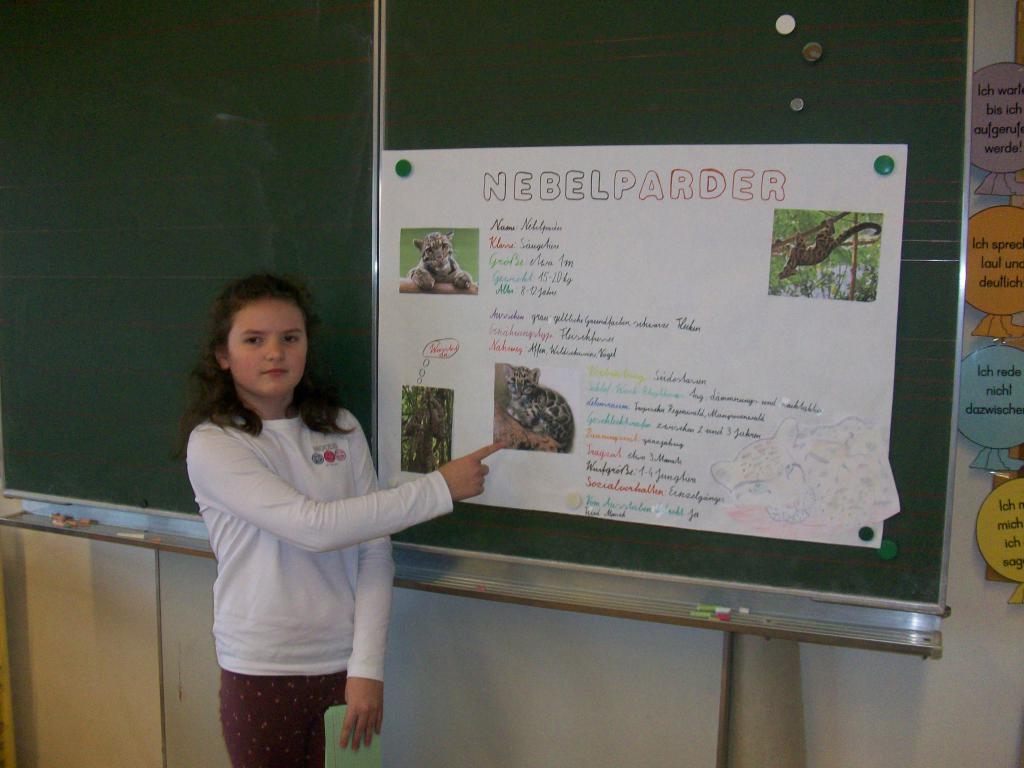 NEBELPARDER
Name: Nebelparder
Klasse: Säugetiere
Größe: etwa 1m
Gewicht: 15-20 kg
Alter: 8-12 Jahre
Aussehen: grau gelbliche Grundfarben schwarze Flecken
Ernährungstyp: Fleischfresser
Nahrung: Affen, Wildschweine, Vögel
Verbreitung: Südostasien
Schlaf-Wach-Rhythmus: tag, dämmerungs- und nachtaktiv
Lebensraum: Tropischer Regenwald, Mangrovenwald
Geschlechtsreife: zwischen 2 und 3 Jahren
Paarungszeit: ganzjährig
Tragzeit: etwa 3 Monate
Wurfgröße: 1-4 Jungtiere
Sozialverhalten: Einzelgänger
Vom Aussterben bedroht: Ja
Ich warte
bis ich
aufgerufe
werde!
Ich sprech
laut und
deutlich.
Ich rede
nicht
dazwischen
Ich m
mich
ich
sag